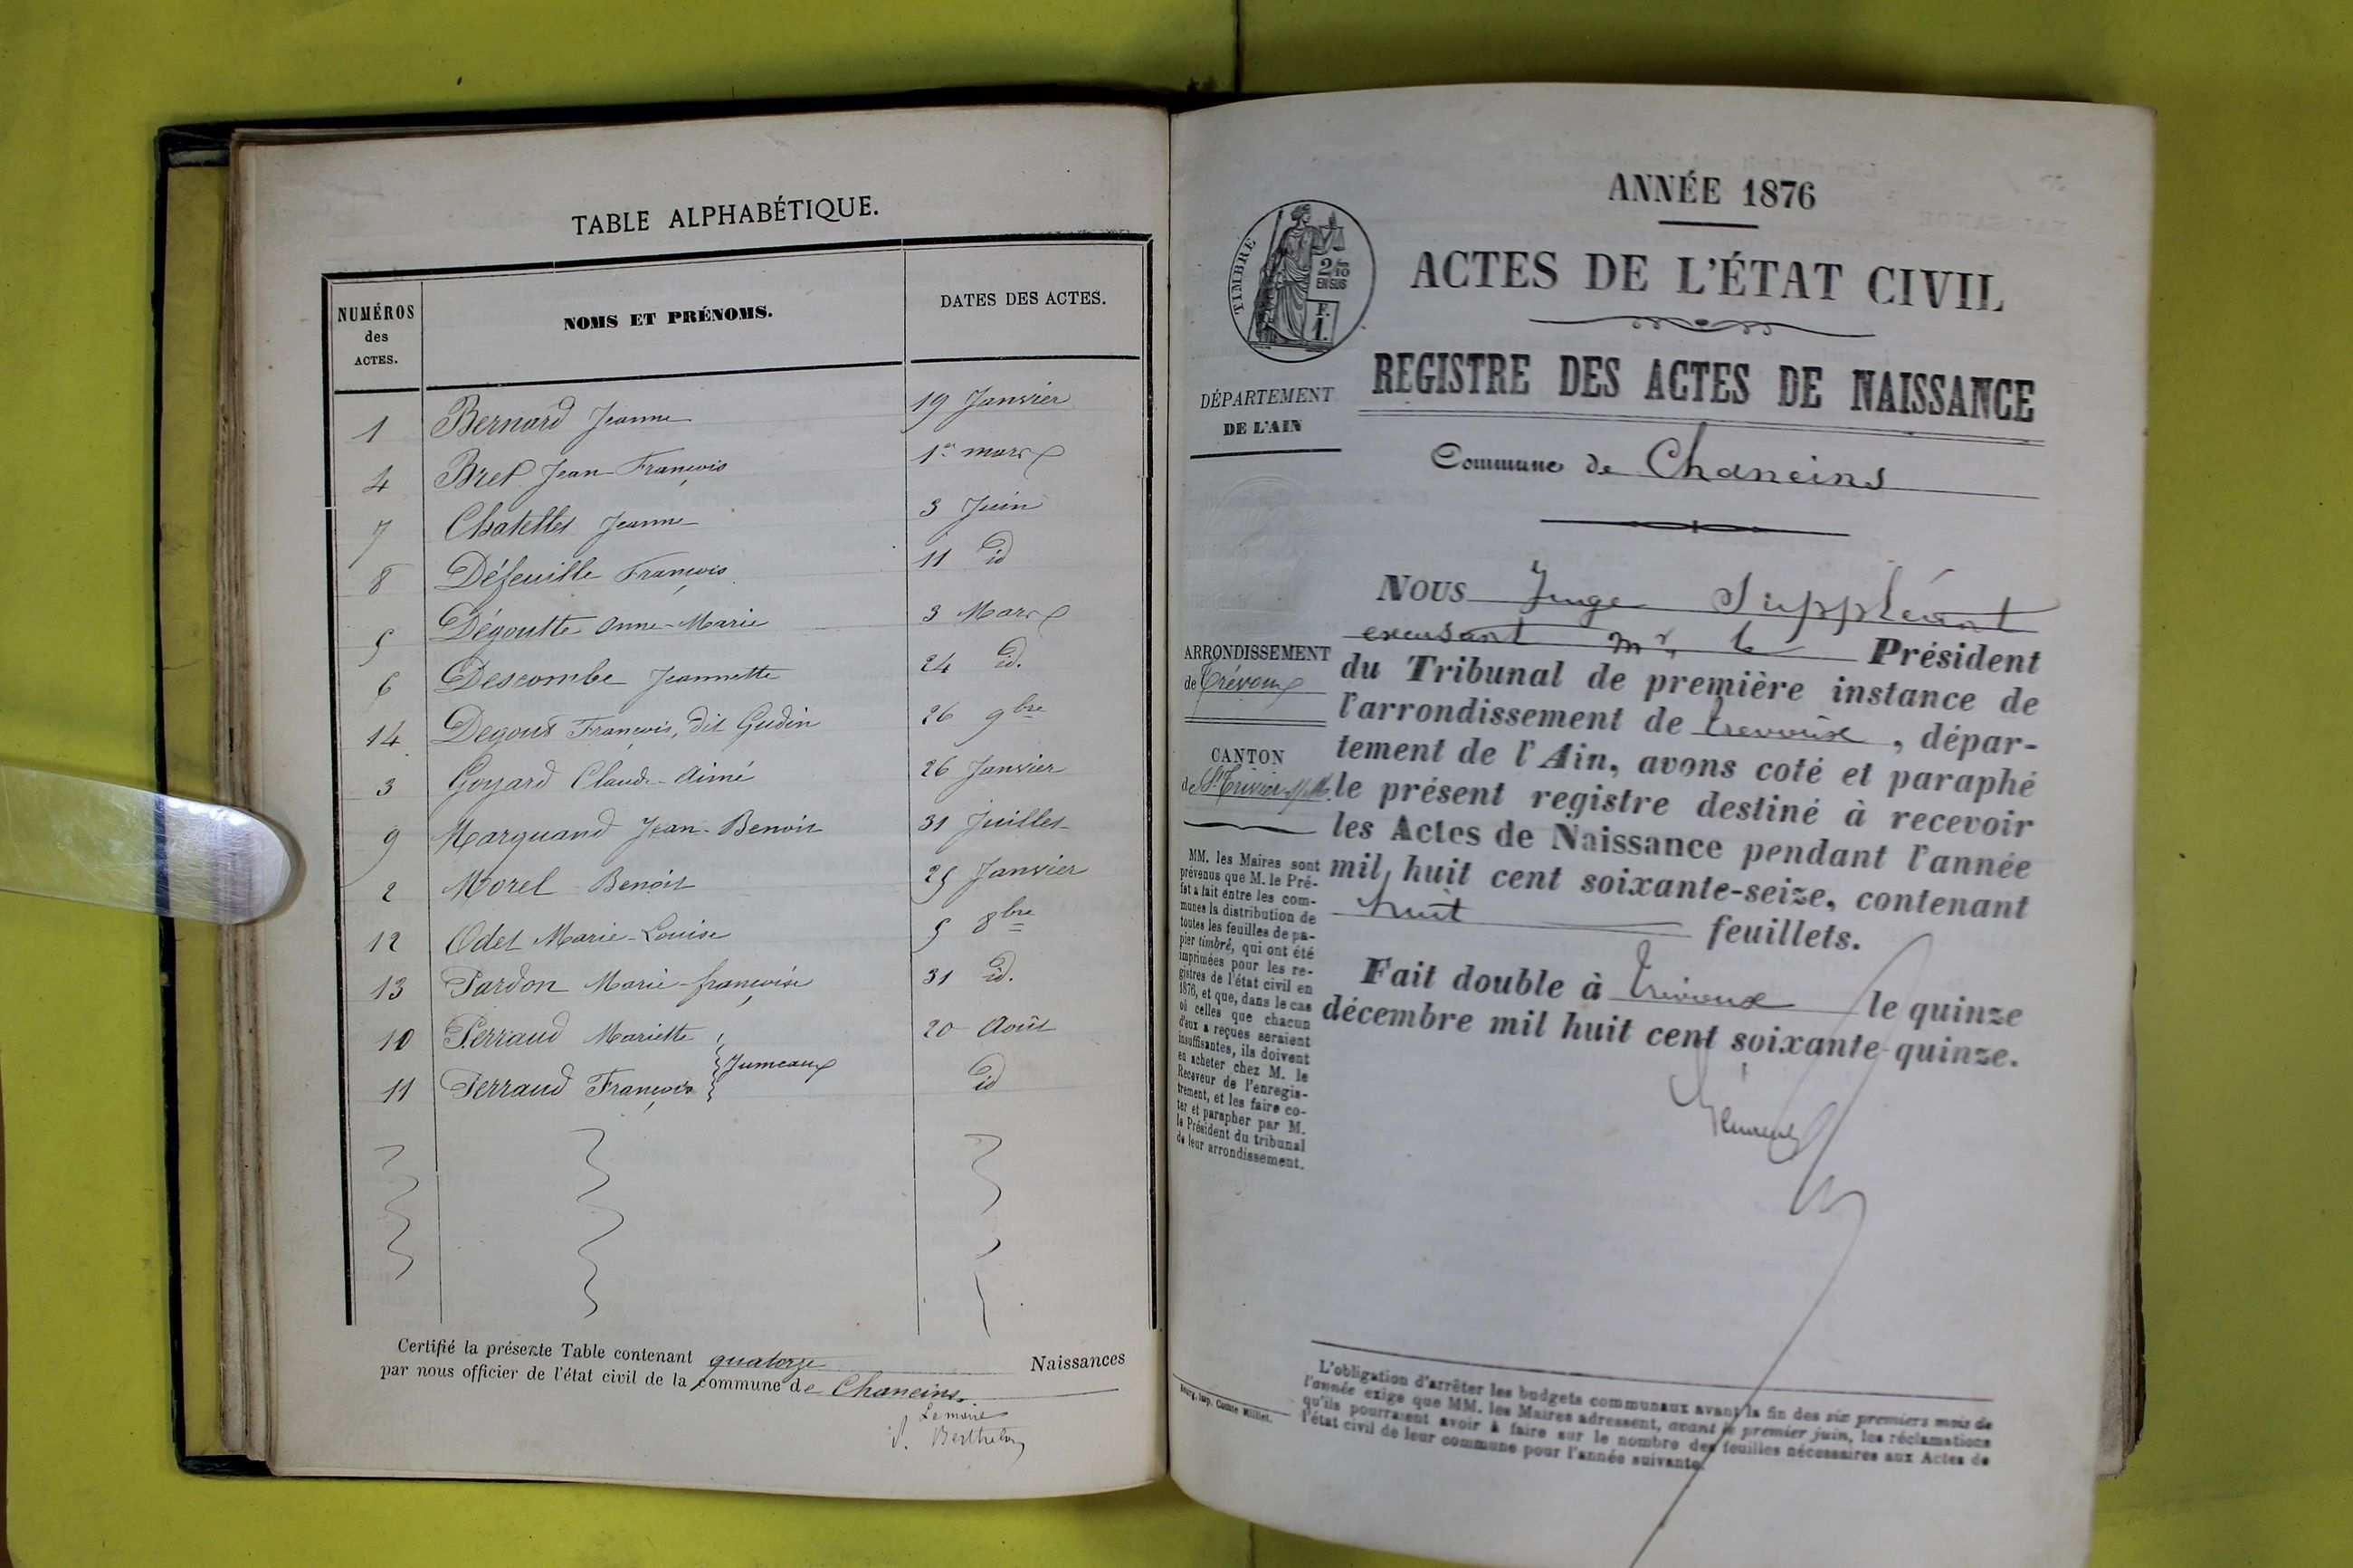 TABLE ALPHABÉTIQUE.
NUMÉROS des ACTES.
NOMS ET PRÉNOMS.
DATES DES ACTES.
1 Bernard Jeanne 19 Janvier
4 Bret Jean-François 1er mars
7 Chatelles Jeanne 3 Juin
8 Défeuille François 11 id
5 Dégoutte Anne-Marie 3 Mars
6 Descombe Jeannette 24 id.
14 Degout François, dit Gudin 26 9bre
3 Goyard Claude-Aimé 26 Janvier
9 Marquand Jean-Benoit 31 Juillet
2 Morel Benoit 25 Janvier
12 Odet Marie-Louise 5 8bre
13 Pardon Marie-françoise 31 id.
10 Perraud Mariette 20 Août
Jumeaux
11 Perraud François id
Certifié la présente Table contenant quatorze Naissances
par nous officier de l'état civil de la commune de Chaneins
Le maire
P. Berthelon
ANNÉE 1876
ACTES DE L'ÉTAT CIVIL
TIMBRE
2/10
EN SUS
F.
1.
REGISTRE DES ACTES DE NAISSANCE
DÉPARTEMENT
DE L'AIN
Commune de Chaneins
NOUS Juge Suppléant
excusant Mr. le Président
du Tribunal de première instance de
l'arrondissement de Trevoux, dépar-
tement de l'Ain, avons coté et paraphé
le présent registre destiné à recevoir
les Actes de Naissance pendant l'année
mil huit cent soixante-seize, contenant
huit feuillets.
Fait double à Trévoux le quinze
décembre mil huit cent soixante-quinze.
ARRONDISSEMENT
de Trévoux
CANTON
de St Trivier s/M.
MM. les Maires sont
prévenus que M. le Pré-
fet a fait entre les com-
munes la distribution de
toutes les feuilles de pa-
pier timbré, qui ont été
imprimées pour les re-
gistres de l'état civil en
1876, et que, dans le cas
où celles que chacun
d'eux a reçues seraient
insuffisantes, ils doivent
en acheter chez M. le
Receveur de l'enregis-
trement, et les faire co-
ter et parapher par M.
le Président du tribunal
de leur arrondissement.
Bourg, imp. Comte Milliet.
L'obligation d'arrêter les budgets communaux avant la fin des six premiers mois de
l'année exige que MM. les Maires adressent, avant le premier juin, les réclamations
qu'ils pourraient avoir à faire sur le nombre des feuilles nécessaires aux Actes de
l'état civil de leur commune pour l'année suivante.